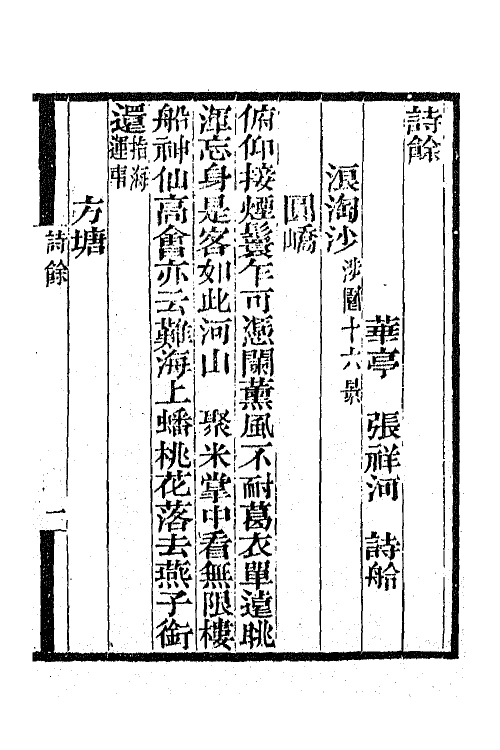 詩餘
華亭　張祥河　詩舲
浪淘沙涉園十六景
圓嶠
俯仰接煙鬟乍可憑闌薰風不耐葛衣單遠眺
渾忘身是客如此河山　聚米掌中看無限樓
船神仙高會亦云難海上蟠桃花落去燕子銜
還指海運事
方塘
詩餘
一